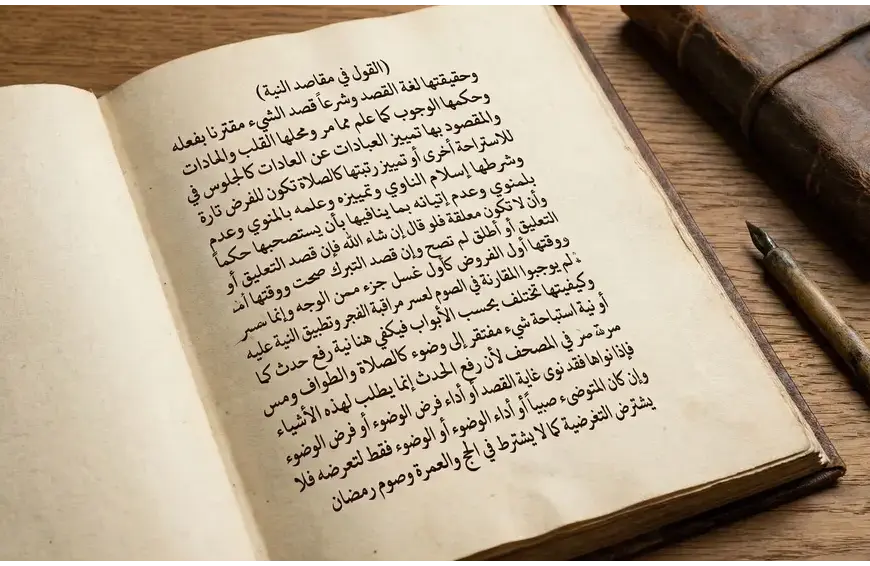 (القول في مقاصد النية)
وحقيقتها لغة القصد وشرعاً قصد الشيء مقترنا بفعله
وحكمها الوجوب كما علم مما مر ومحلها القلب والمادات
والمقصود بها تمييز العبادات عن العادات كالجلوس في
للاستراحة أخرى أو تمييز رتبتها كالصلاة تكون للفرض تارة
وشرطها إسلام الناوي وتمييزه وعلمه بالمنوي وعدم
بلمنوي وعدم إتيانه بما ينافيها بأن يستصحبها حكماً
وأن لا تكون معلقة فلو قال إن شاء الله فإن قصد التعليق أو
التعليق أو أطلق لم تصح وإن قصد التبرك صحت ووقتها
ووقتها أول الفروض كأول غسل جزء ممن الوجه وإنما
لم يوجبوا المقارنة في الصوم لعسر مراقبة الفجر وتطبيق النية عليه
وكيفيتها تختلف بحسب الأبواب فيكفي هنانية رفع حدث كما
أو نية استباحة شيء مفتقر إلى وضوء كالصلاة والطواف ومس
في المصحف لأن رفع الحدث إنما يطلب لهذه الأشياء
فإذا نواها فقد نوى غاية القصد أو أداء فرض الوضوء أو فرض الوضوء
وإن كان المتوضىء صبياً أو أداء الوضوء أو الوضوء فقط لتعرضه فلا
يشترض التغرضية كما لا يشترط في الحج والعمرة وصوم رمضان